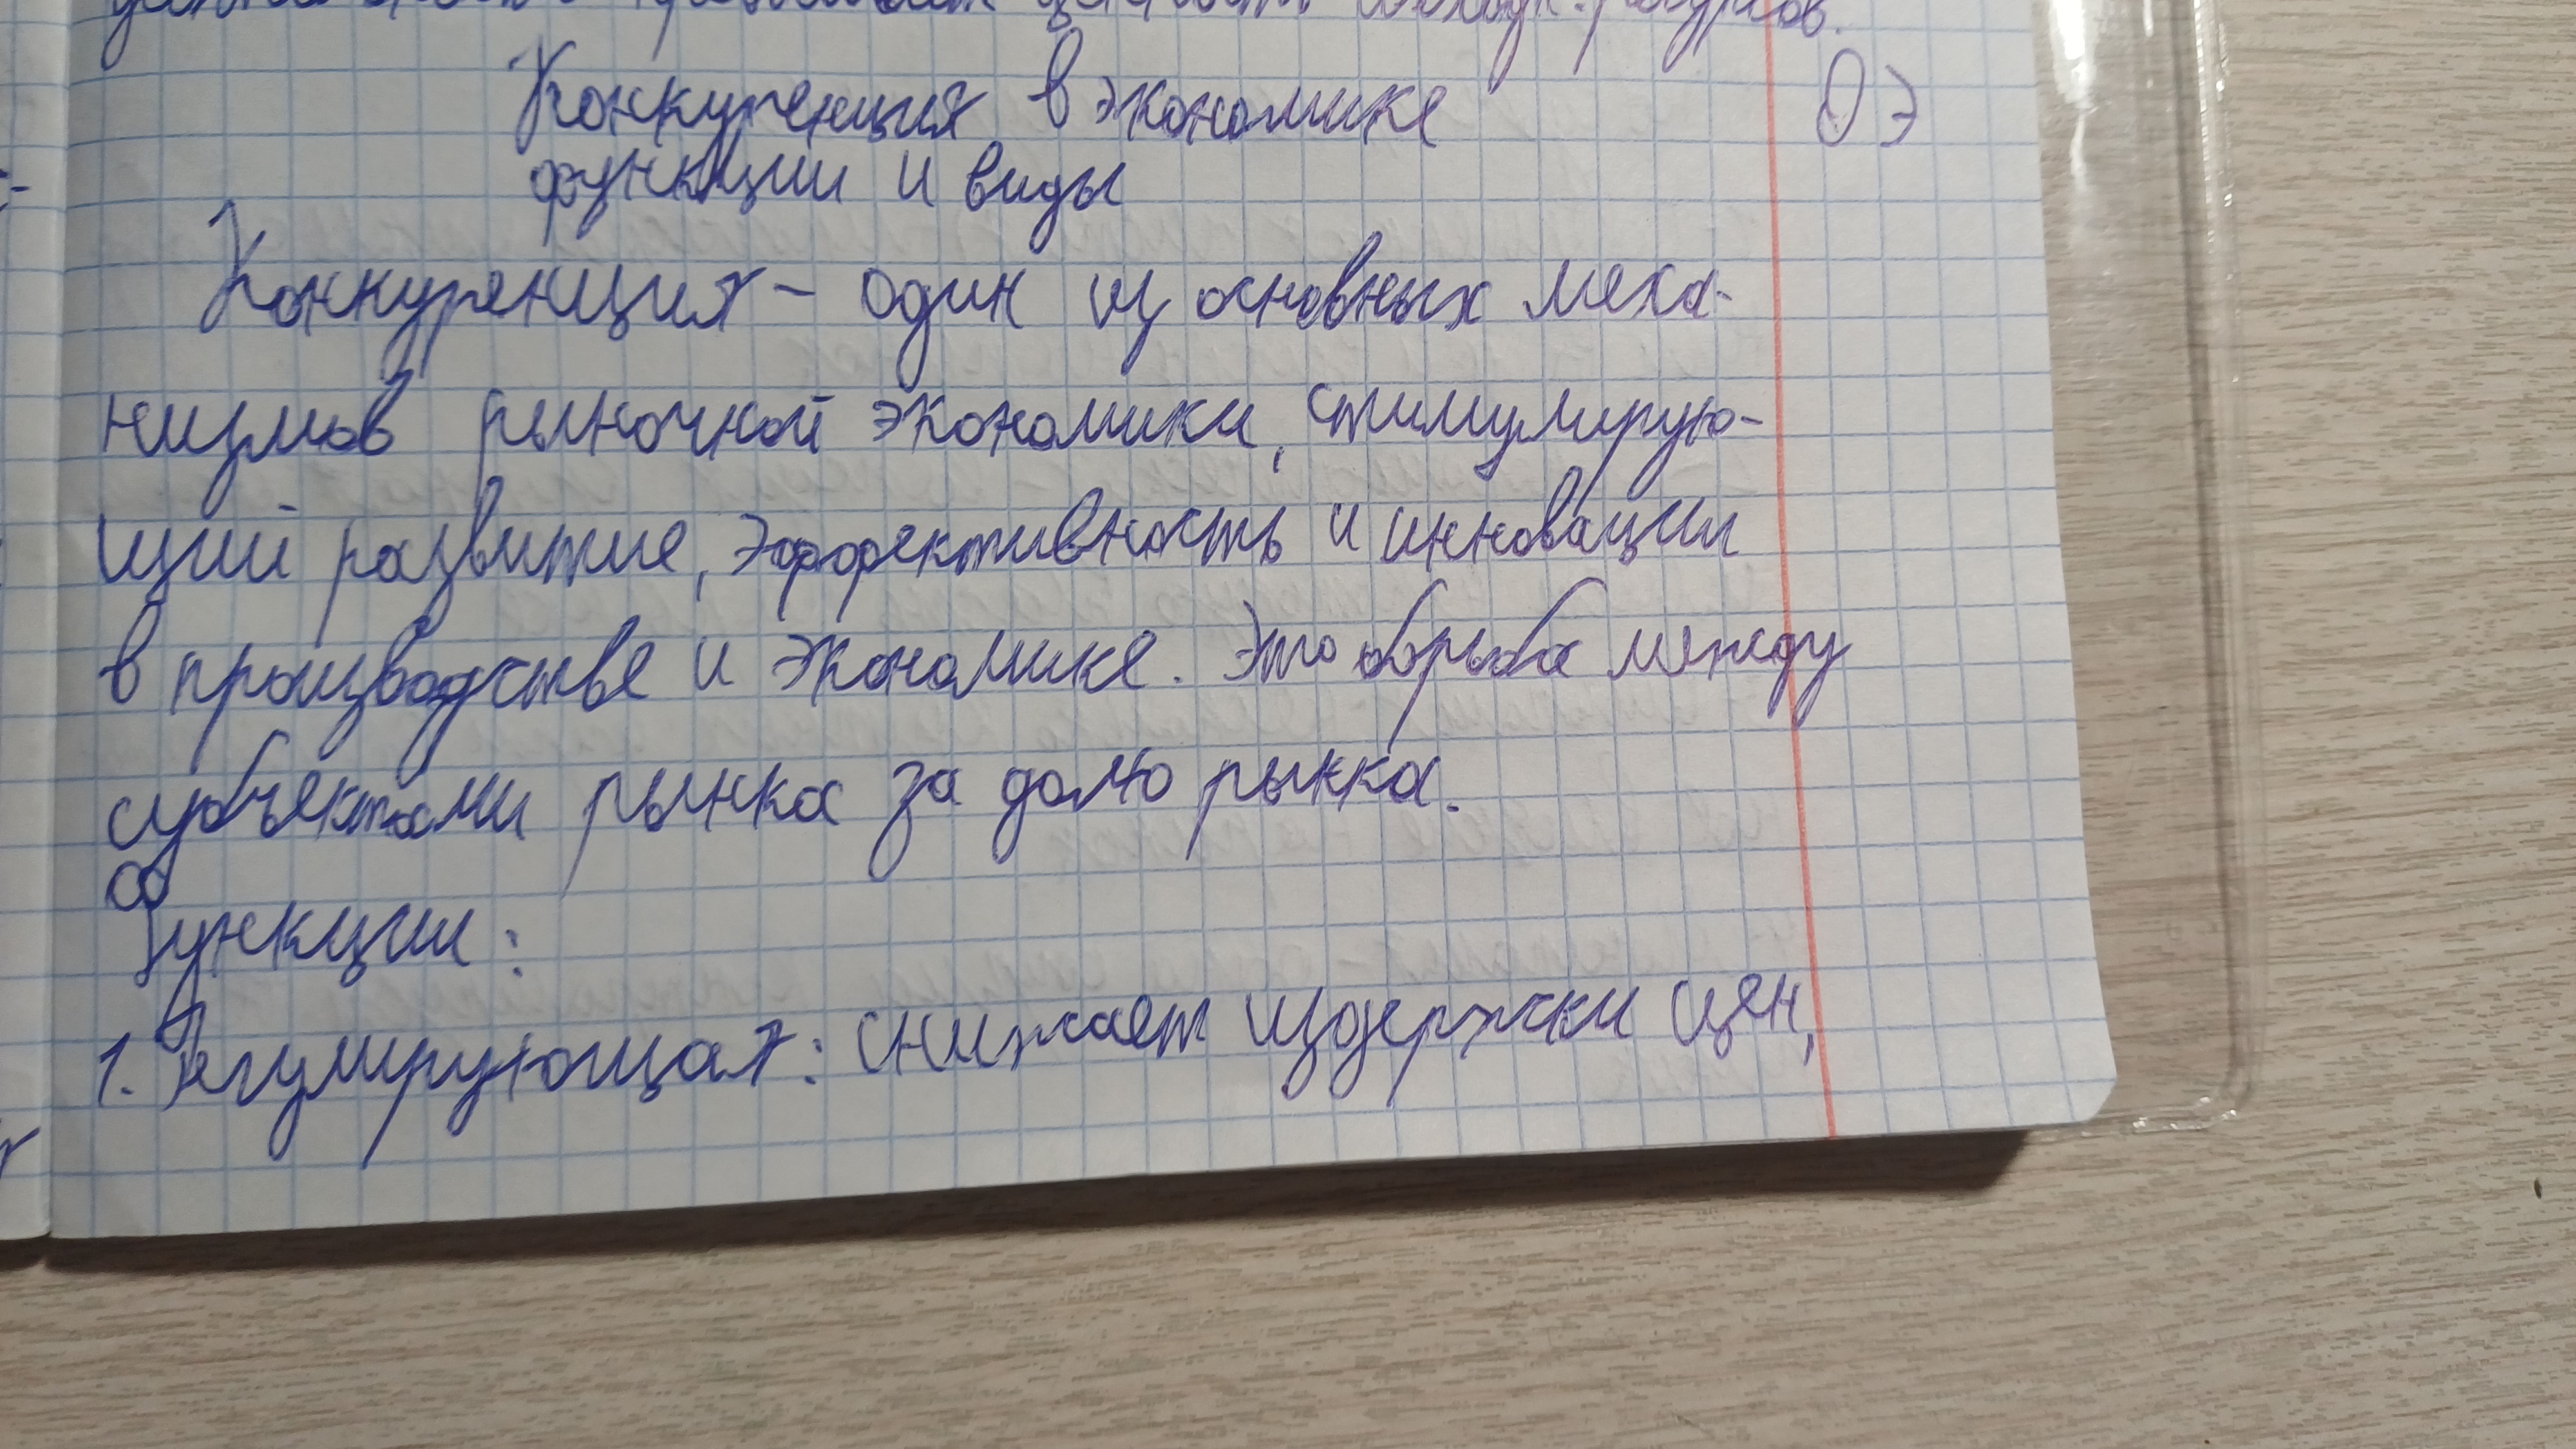 ценность исходн. ресурсов.
Конкуренция в экономике ОЭ
функции и виды
Конкуренция - один из основных меха-
низмов рыночной экономики, стимулирую-
щий развитие, эффективность и инновации
в производстве и экономике. Это борьба между
субъектами рынка за долю рынка.
Функции:
1. Регулирующая: снижает издержки цен,